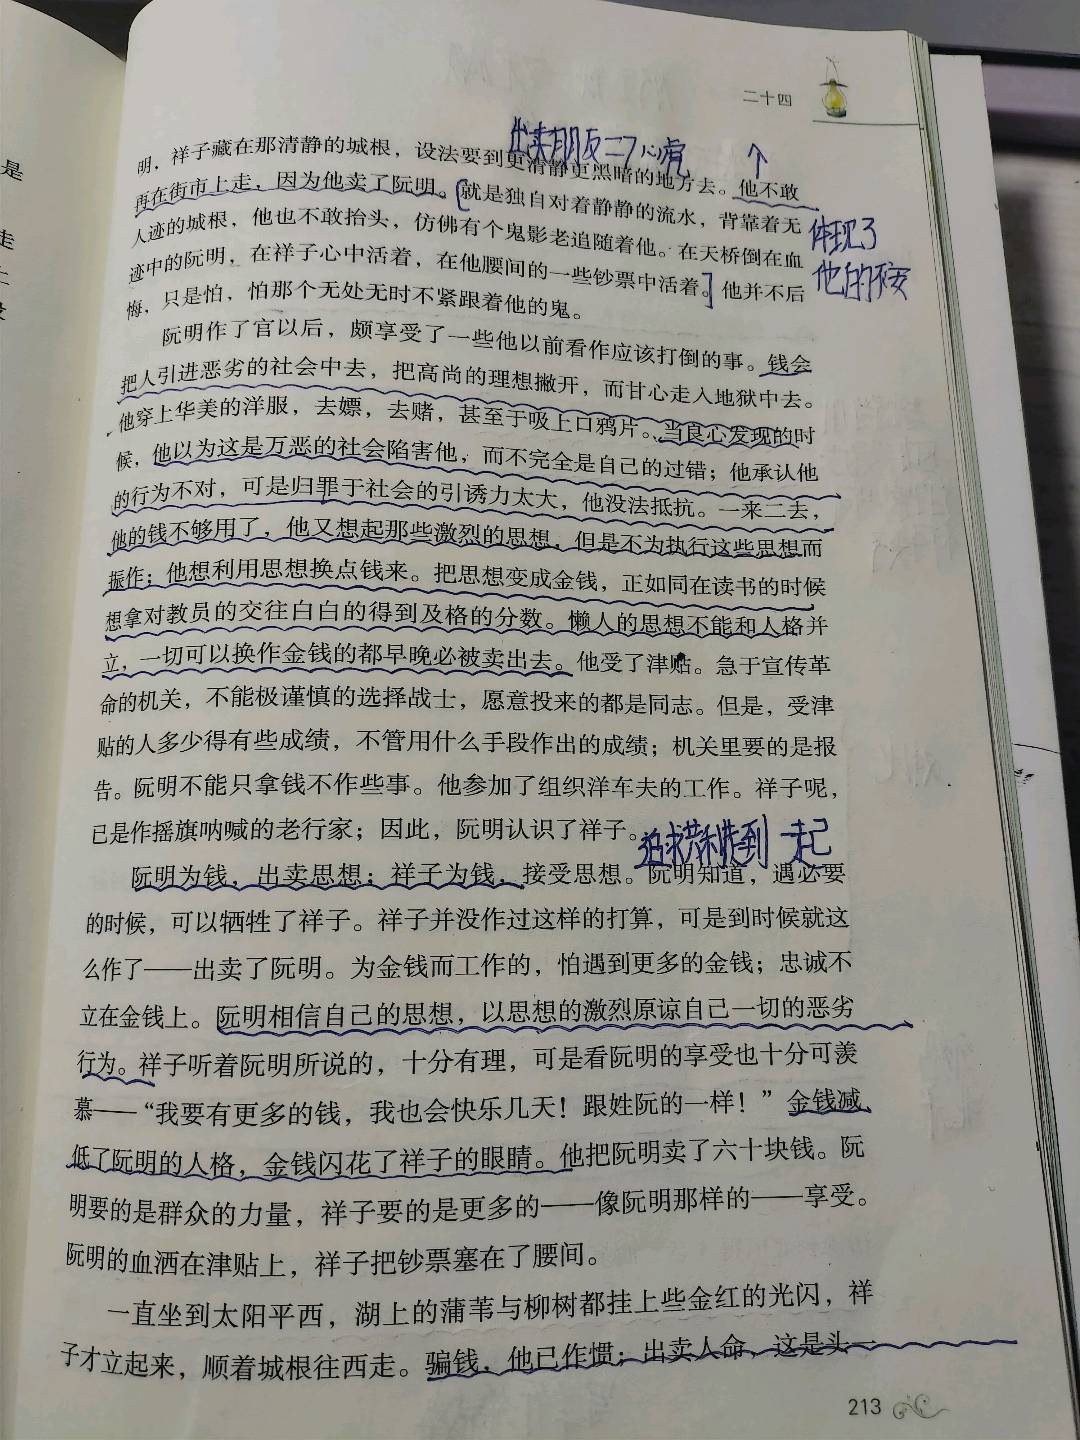 二十四
出卖朋友=了心病
明，祥子藏在那清静的城根，设法要到更清静更黑暗的地方去。他不敢
再在街市上走，因为他卖了阮明。就是独自对着静静的流水，背靠着无
人迹的城根，他也不敢抬头，仿佛有个鬼影老追随着他。在天桥倒在血
迹中的阮明，在祥子心中活着，在他腰间的一些钞票中活着。他并不后
悔，只是怕，怕那个无处无时不紧跟着他的鬼。
体现了
他的不安
阮明作了官以后，颇享受了一些他以前看作应该打倒的事。钱会
把人引进恶劣的社会中去，把高尚的理想撇开，而甘心走入地狱中去。
他穿上华美的洋服，去嫖，去赌，甚至于吸上口鸦片。当良心发现的时
候，他以为这是万恶的社会陷害他，而不完全是自己的过错；他承认他
的行为不对，可是归罪于社会的引诱力太大，他没法抵抗。一来二去，
他的钱不够用了，他又想起那些激烈的思想，但是不为执行这些思想而
振作；他想利用思想换点钱来。把思想变成金钱，正如同在读书的时候
想拿对教员的交往白白的得到及格的分数。懒人的思想不能和人格并
立，一切可以换作金钱的都早晚必被卖出去。他受了津贴。急于宣传革
命的机关，不能极谨慎的选择战士，愿意投来的都是同志。但是，受津
贴的人多少得有些成绩，不管用什么手段作出的成绩；机关里要的是报
告。阮明不能只拿钱不作些事。他参加了组织洋车夫的工作。祥子呢，
已是作摇旗呐喊的老行家；因此，阮明认识了祥子。
到一起
阮明为钱，出卖思想；祥子为钱，接受思想。阮明知道，遇必要
的时候，可以牺牲了祥子。祥子并没作过这样的打算，可是到时候就这
么作了——出卖了阮明。为金钱而工作的，怕遇到更多的金钱；忠诚不
立在金钱上。阮明相信自己的思想，以思想的激烈原谅自己一切的恶劣
行为。祥子听着阮明所说的，十分有理，可是看阮明的享受也十分可羡
慕——“我要有更多的钱，我也会快乐几天！跟姓阮的一样！”金钱减
低了阮明的人格，金钱闪花了祥子的眼睛。他把阮明卖了六十块钱。阮
明要的是群众的力量，祥子要的是更多的——像阮明那样的——享受。
阮明的血洒在津贴上，祥子把钞票塞在了腰间。
一直坐到太阳平西，湖上的蒲苇与柳树都挂上些金红的光闪，祥
子才立起来，顺着城根往西走。骗钱，他已作惯；出卖人命，这是头一
213